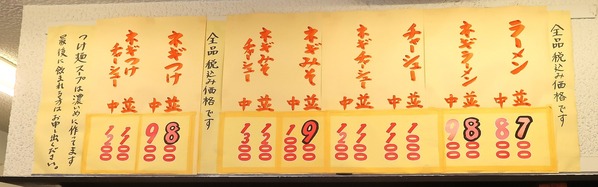 全品税込み価格です
ラーメン
並 700
中 800
ネギラーメン
並 800
中 900
チャーシュー
並
中
ネギチャーシュー
並
中
ネギみそ
並 900
中 1000
ネギみそチャーシュー
並 1200
中 1300
全品税込み価格です
ネギつけ
並 800
中 900
ネギつけチャーシュー
並
中
つけ麺スープは濃いめに作ってます
最後に飲まれる方はお申し出ください。